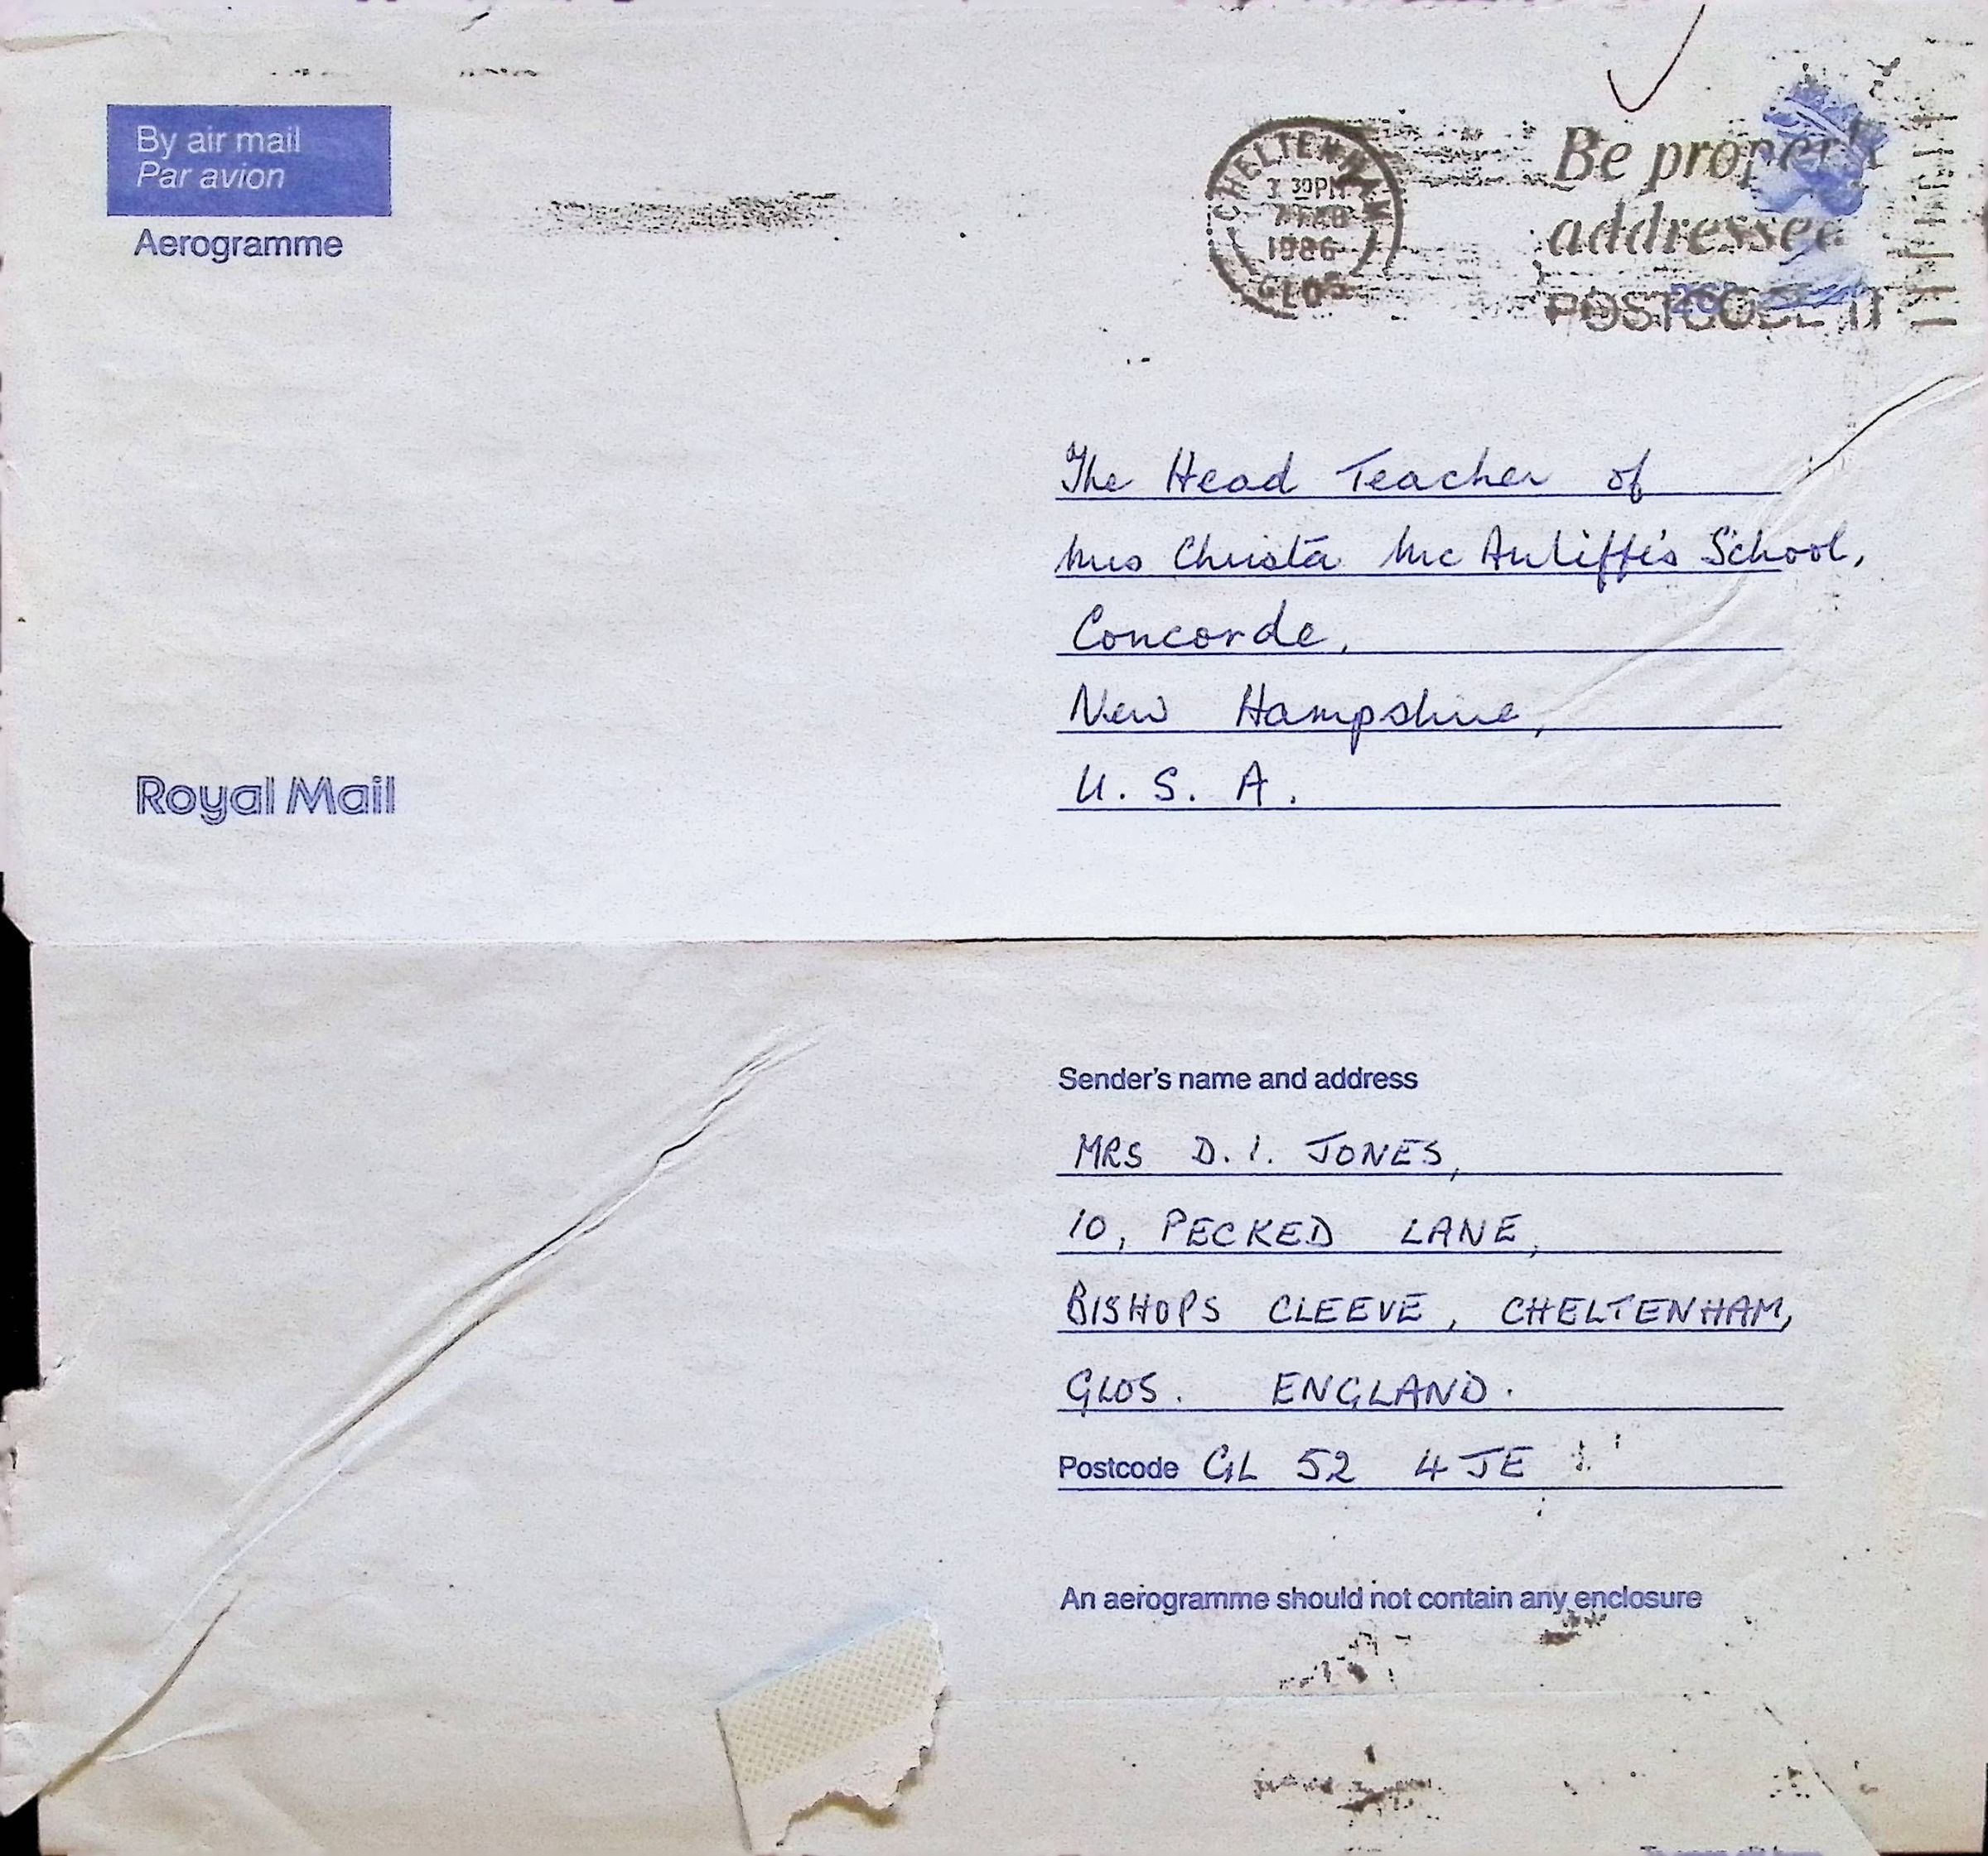 By air mail
Par avion
Aerogramme
CHELTENHAM
30PM
1986
GLOS
Be properly
addressed
POSTCODE IT
The Head Teacher of
Mrs Christa McAuliffe's School,
Concorde,
New Hampshire,
U. S. A.
Royal Mail
Sender's name and address
MRS D. I. JONES,
10, PECKED LANE,
BISHOPS CLEEVE, CHELTENHAM,
GLOS. ENGLAND.
Postcode GL 52 4 JE
An aerogramme should not contain any enclosure